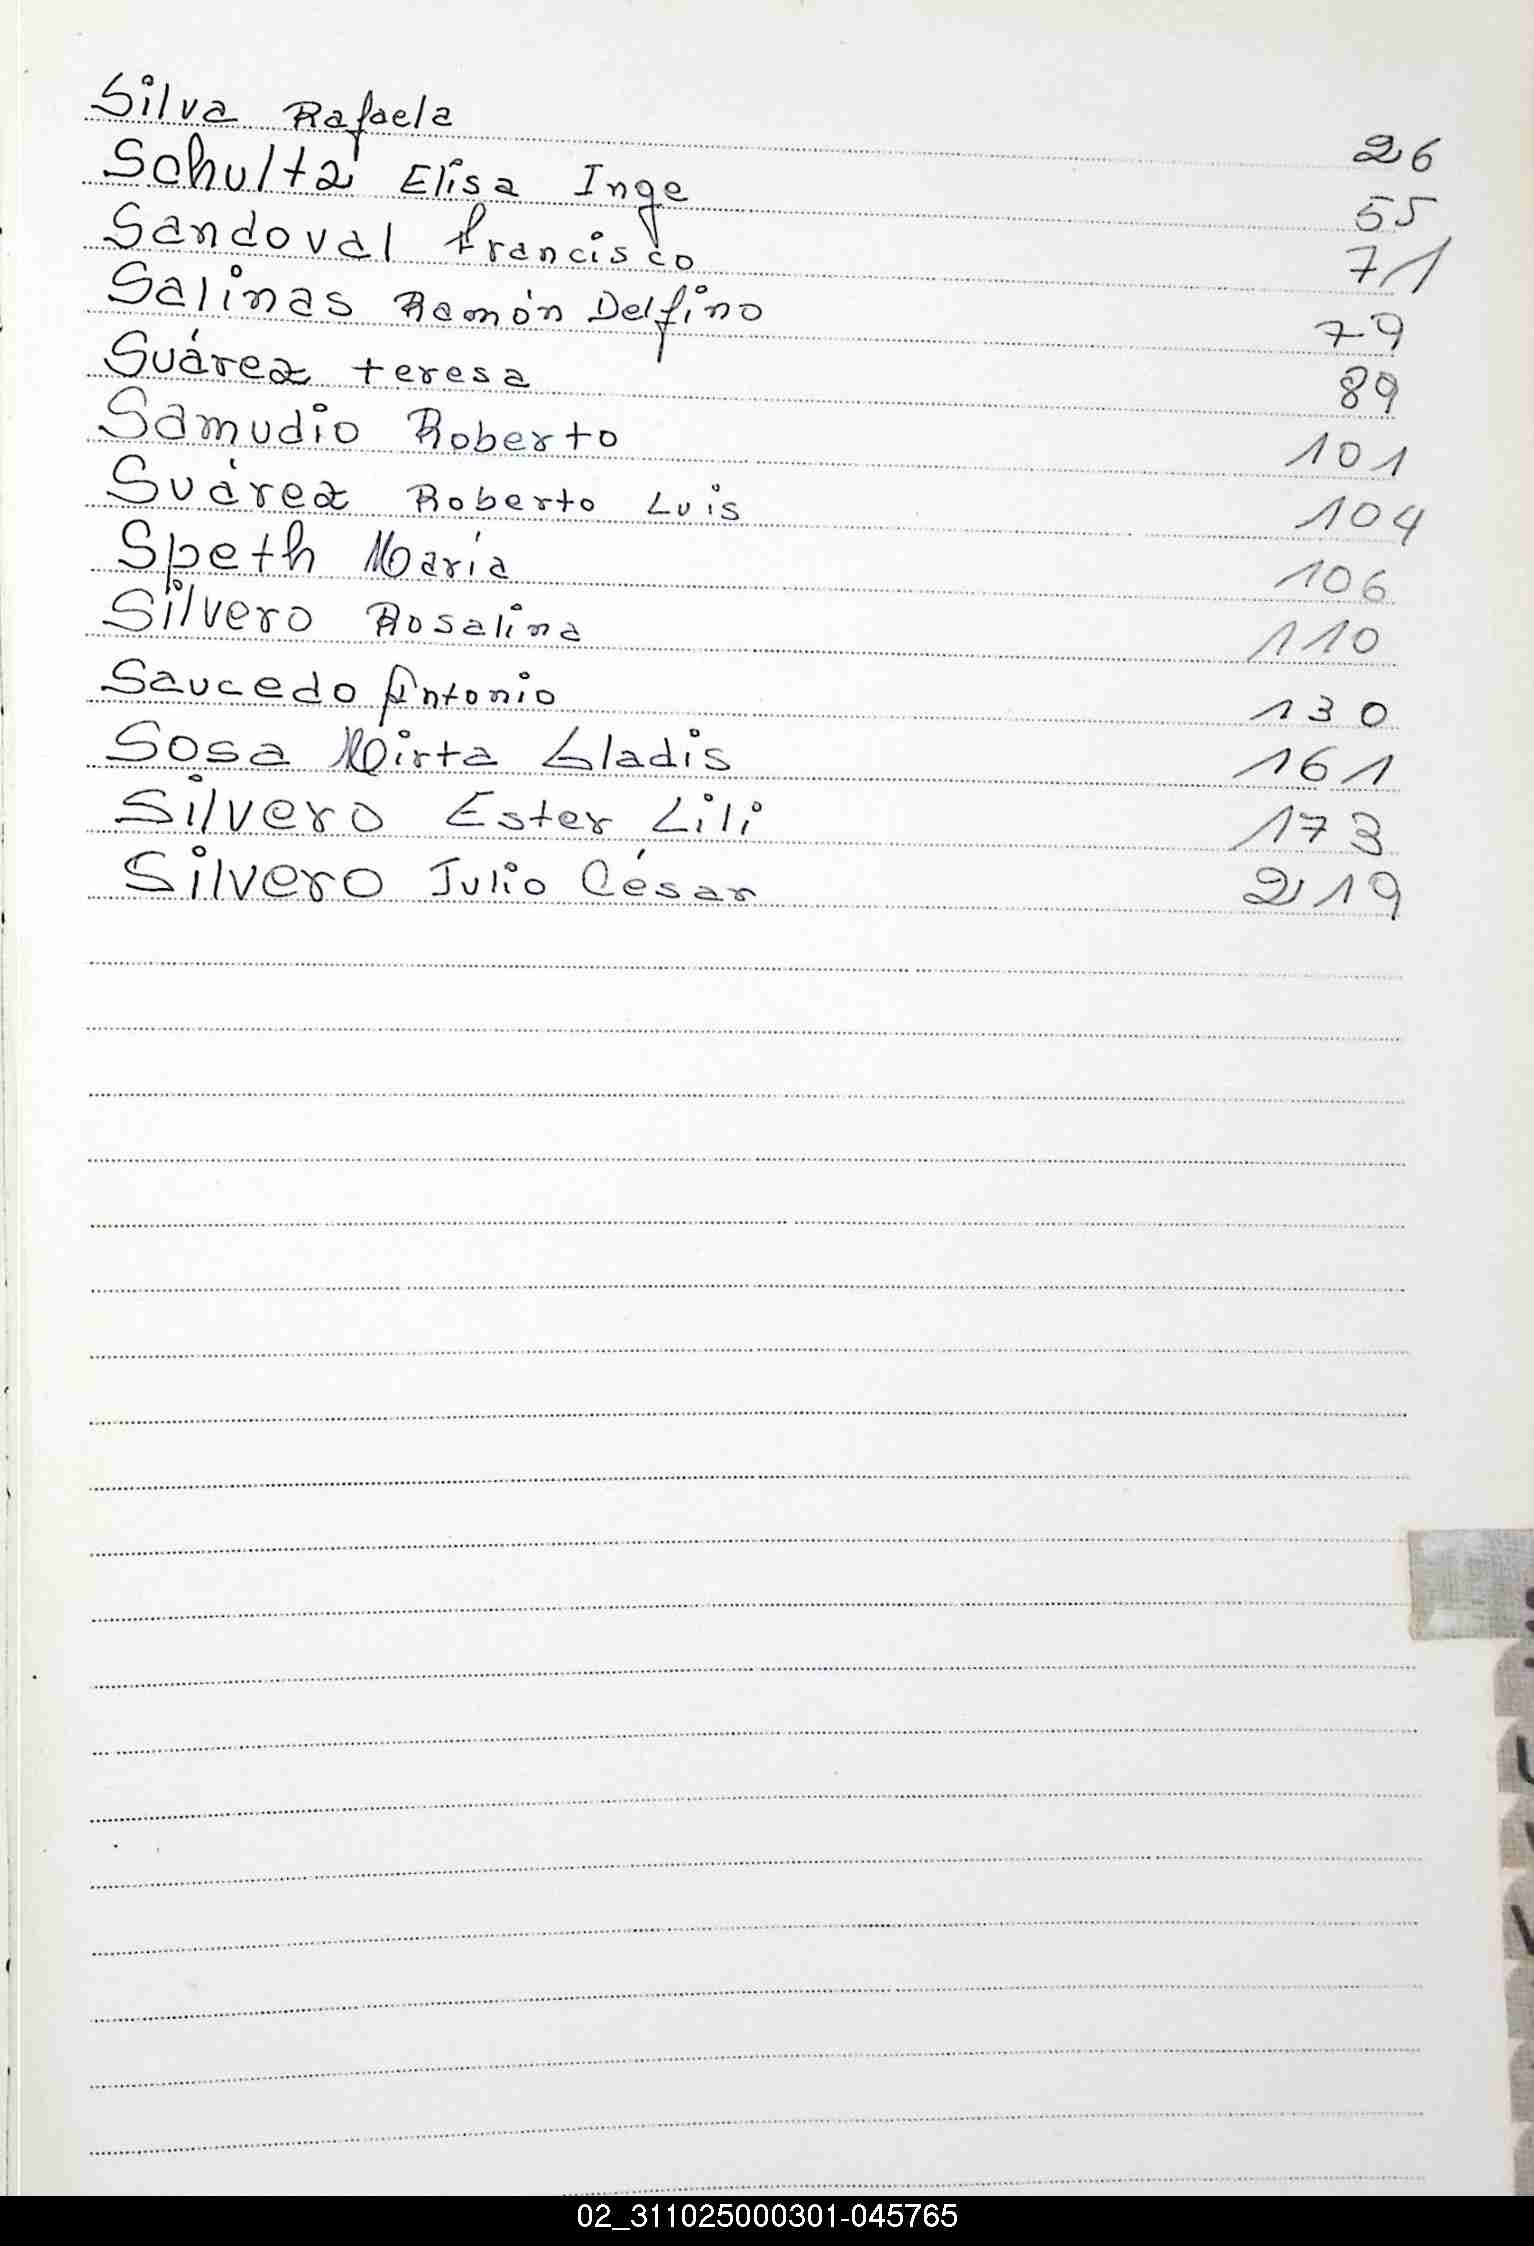 Silva Rafaela 26
Schultz Elisa Inge 55
Sandoval francisco 71
Salinas Ramón Delfino 79
Suárez teresa 89
Samudio Roberto 101
Suárez Roberto Luis 104
Speth María 106
Silvero Rosalina 110
Saucedo Antonio 130
Sosa Mirta Gladis 161
Silvero Ester Lili 173
Silvero Julio César 219
02_311025000301-045765